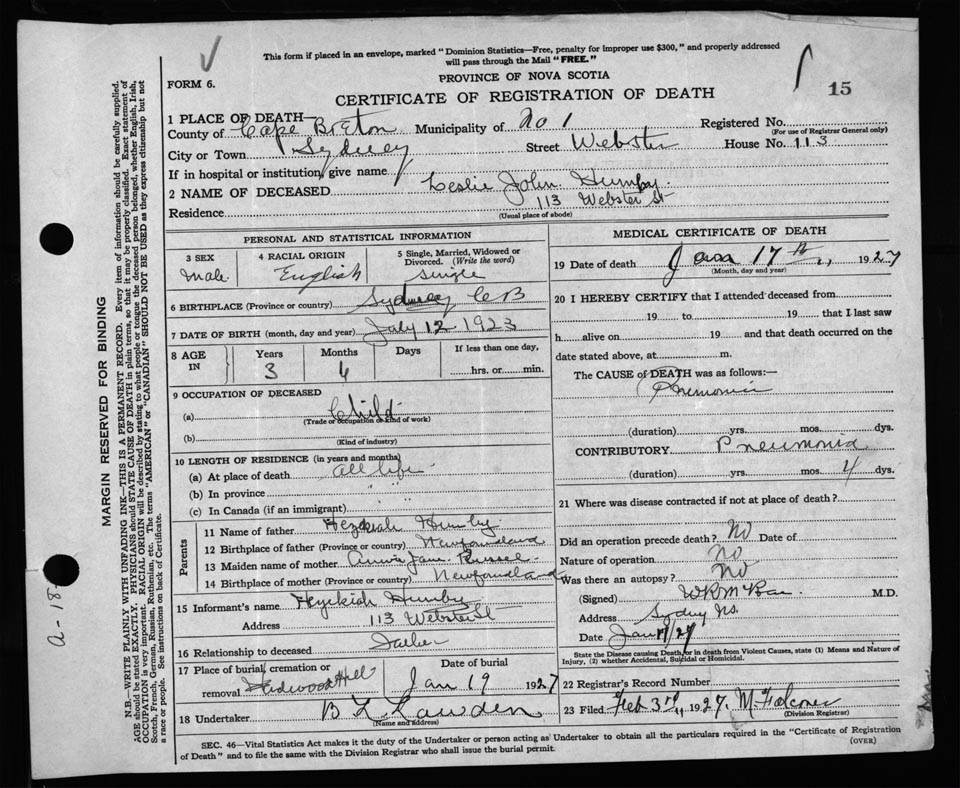 This form if placed in an envelope, marked "Dominion Statistics—Free, penalty for improper use $300," and properly addressed
will pass through the Mail "FREE."
FORM 6.
PROVINCE OF NOVA SCOTIA
15
CERTIFICATE OF REGISTRATION OF DEATH
1 PLACE OF DEATH—
County of Cape Breton Municipality of No 1 Registered No.
(For use of Registrar General only)
City or Town Sydney Street Webster House No. 113
If in hospital or institution, give name
2 NAME OF DECEASED Leslie John Humby
Residence 113 Webster St
(Usual place of abode)
PERSONAL AND STATISTICAL INFORMATION
3 SEX 4 RACIAL ORIGIN 5 Single, Married, Widowed or Divorced. (Write the word)
Male English Single
6 BIRTHPLACE (Province or country) Sydney CB
7 DATE OF BIRTH (month, day and year) July 12 1923
8 AGE IN Years Months Days If less than one day,
3 4 hrs. or min.
9 OCCUPATION OF DECEASED
(a) Child
(Trade or occupation or kind of work)
(b)
(Kind of industry)
10 LENGTH OF RESIDENCE (in years and months)
(a) At place of death all life
(b) In province " "
(c) In Canada (if an immigrant)
Parents
11 Name of father Hezekiah Humby
12 Birthplace of father (Province or country) Newfoundland
13 Maiden name of mother Annie Jane Russel
14 Birthplace of mother (Province or country) Newfoundland
15 Informant's name Hezekiah Humby
Address 113 Webster St
16 Relationship to deceased Father
17 Place of burial, cremation or removal Hill Date of burial
Jan 19 1927
18 Undertaker
(Name and address)
MEDICAL CERTIFICATE OF DEATH
19 Date of death Jan 17th, 1927
(Month, day and year)
20 I HEREBY CERTIFY that I attended deceased from
19 to 19 that I last saw
h alive on 19 and that death occurred on the
date stated above, at m.
The CAUSE of DEATH was as follows:—
Pnemonia
(duration) yrs. mos. dys.
CONTRIBUTORY Pneumonia
(duration) yrs. mos. 4 dys.
21 Where was disease contracted if not at place of death?
Did an operation precede death? No Date of
Nature of operation No
Was there an autopsy? No
(Signed) M.D.
Address Sydney NS.
Date Jan /27
State the Disease causing Death, or in death from Violent Causes, state (1) Means and Nature of
Injury, (2) whether Accidental, Suicidal or Homicidal.
22 Registrar's Record Number
23 Filed Feb 3rd, 1927.
(Division Registrar)
SEC. 46—Vital Statistics Act makes it the duty of the Undertaker or person acting as Undertaker to obtain all the particulars required in the "Certificate of Registration
of Death" and to file the same with the Division Registrar who shall issue the burial permit.
(OVER)
MARGIN RESERVED FOR BINDING
N.B.—WRITE PLAINLY WITH UNFADING INK—THIS IS A PERMANENT RECORD. Every item of information should be carefully supplied.
AGE should be stated EXACTLY. PHYSICIANS should STATE CAUSE OF DEATH in plain terms, so that it may be properly classified. Exact statement of
OCCUPATION is very important. RACIAL ORIGIN will be described by stating to what people or tongue the deceased person belonged, whether English, Irish,
Scotch, French, German, Russian, Ruthenian, etc. The terms "AMERICAN" or "CANADIAN" SHOULD NOT BE USED as they express citizenship but not
a race or people. See instructions on back of Certificate.
a-18